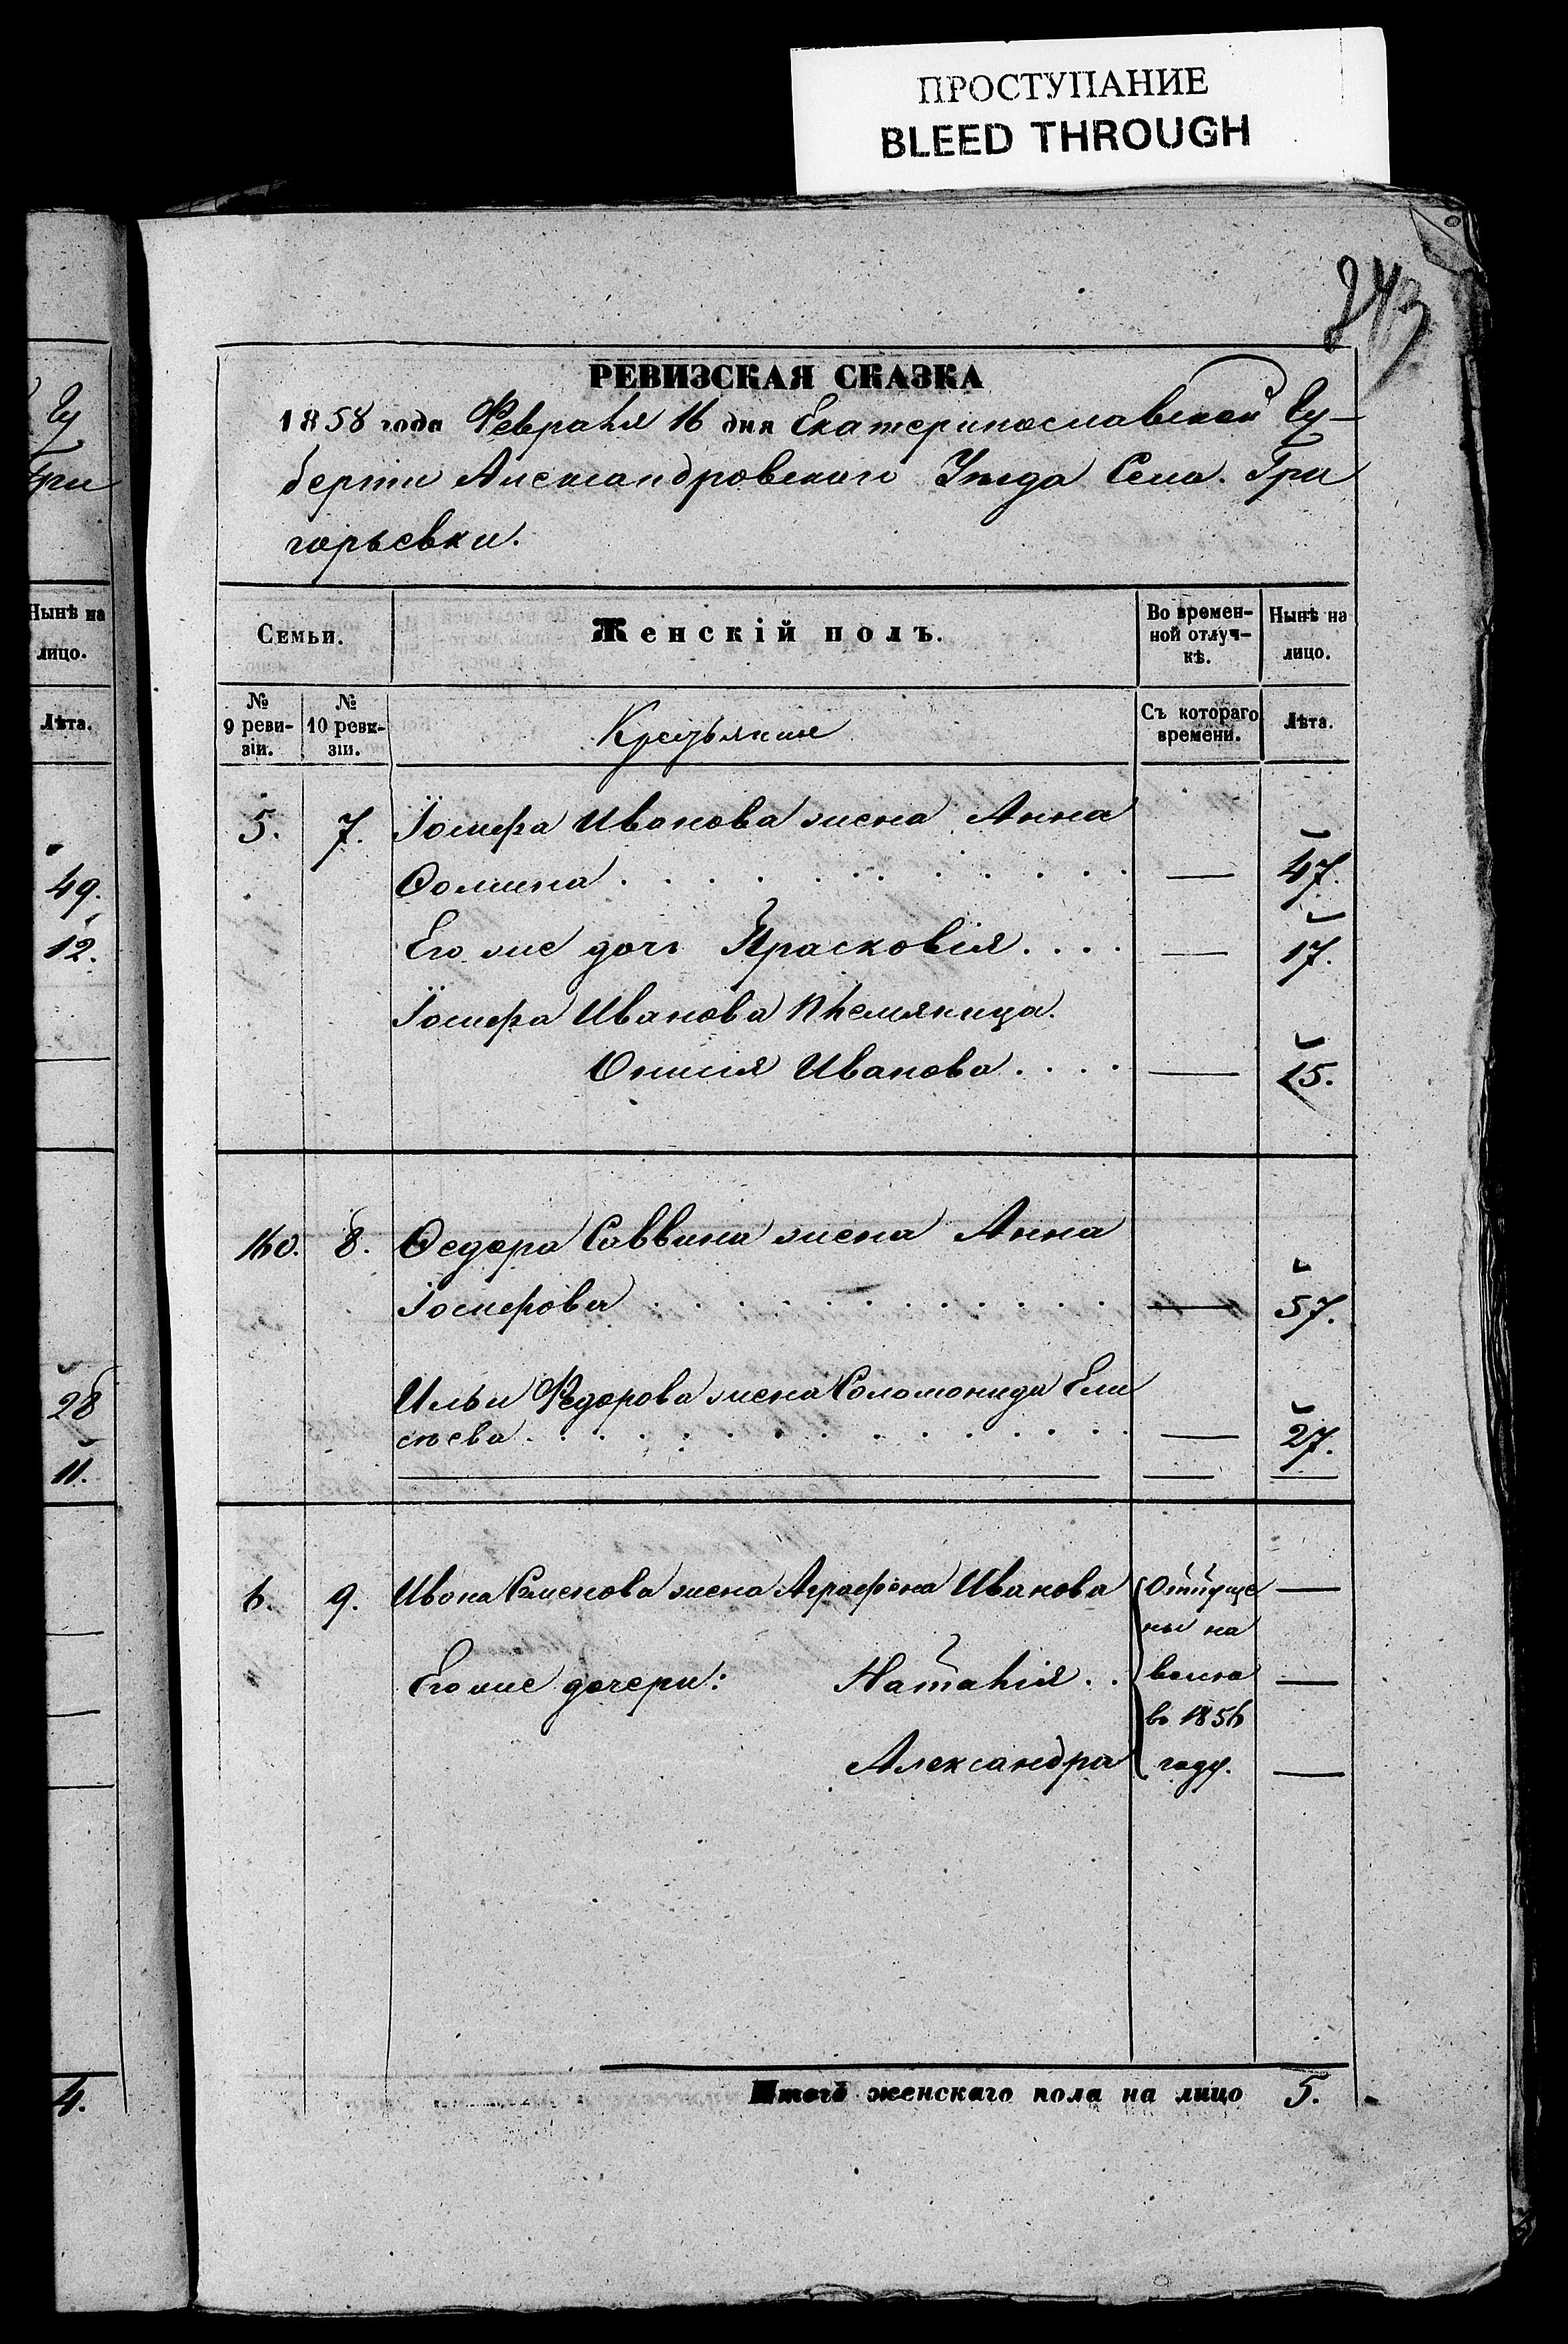 ПРОСТУПАНИЕ
BLEED THROUGH
243
РЕВИЗСКАЯ СКАЗКА
1858 года Февраля 16 дня Екатеринославской Гу-
берніи Александровскаго Уѣзда Села Гри
горьевки.
Гу
Гри
Нынѣ на
лицо.
Лѣта.
49.
12.
28
11.
4.
Семьи.
Женскій полъ.
Во времен-
ной отлуч-
кѣ.
Нынѣ на
лицо.
№
9 реви-
зіи.
№
10 реви-
зіи.
Крестьяние
Съ котораго
времени.
Лѣта.
5. 7. Іосифа Иванова жена Анна
Ѳомина . . . . . . . . . . . . — 47.
Его же дочь Прасковія . . . . — 17.
Іосифа Иванова племяница
Онисія Иванова . . . . — 15.
160. 8. Ѳедора Саввина жена Анна
Іосифова . . . . . . . . . . . . — 57.
Ильи Федорова жена Соломонида Ели
сѣева . . . . . . . . . . . . . . — 27.
6. 9. Ивана Семенова жена Аграфена Иванова Отпуще —
ны на
Его же дочери: Наталія . . волю —
въ 1856
Александра году. —
Итого женскаго пола на лицо 5.